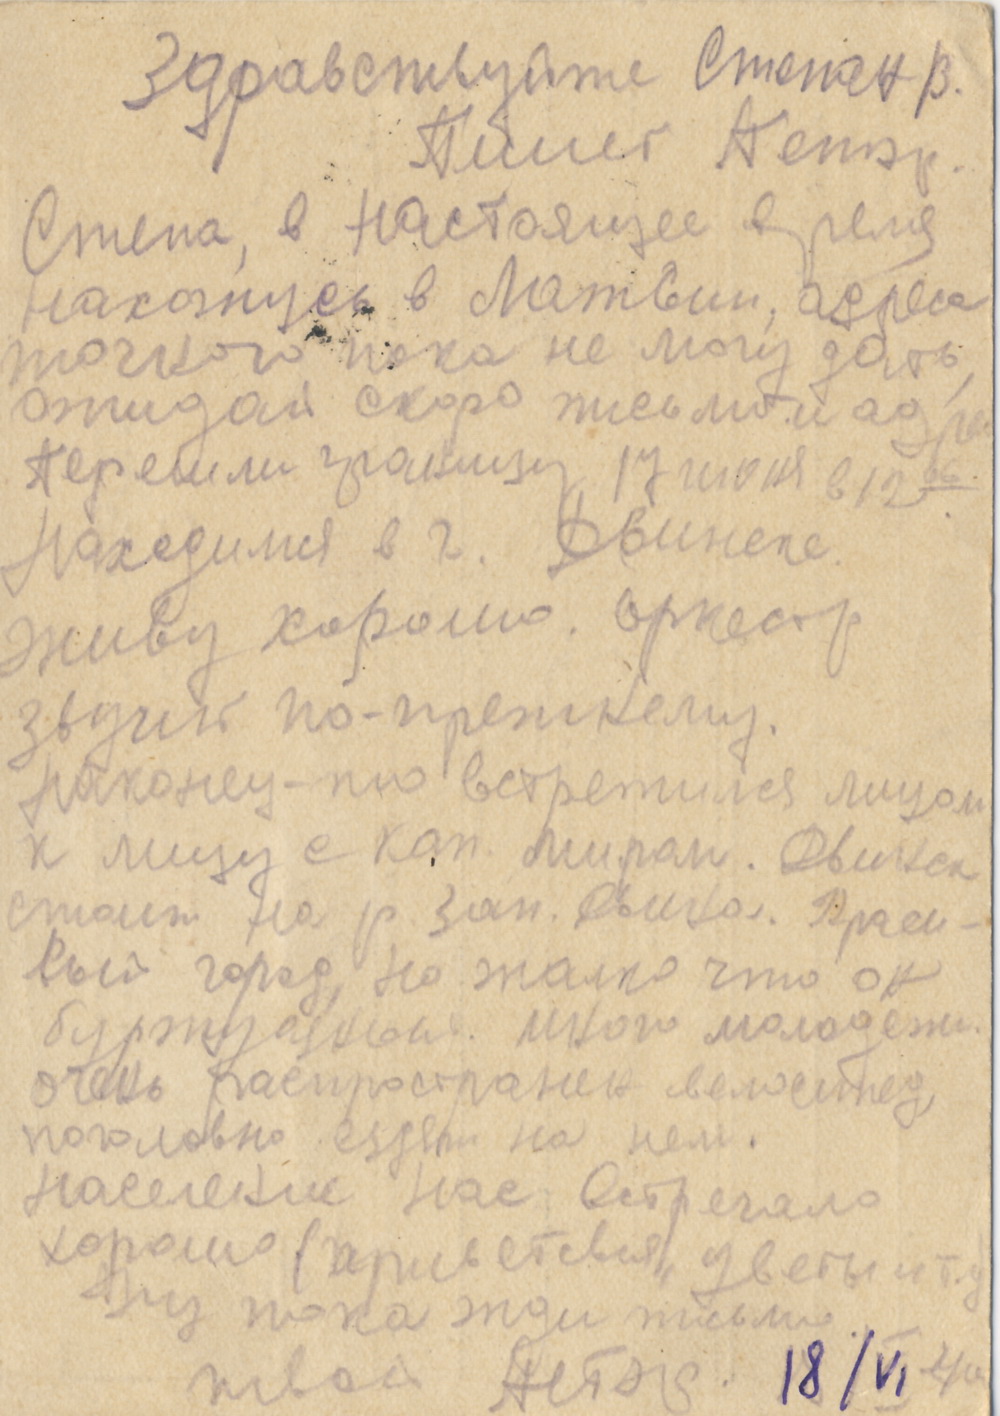 Здравствуйте Степан В.
Пишет Петър.
Степа, в настоящее время
нахожусь в Латвии, адреса
точного пока не могу дать,
ожидай скоро письмо и адрес
Перешли границу 17 июня в 12 00.
Находимся в г. Двинске.
Живу хорошо. Оркестр
звучит по-прежнему.
Наконец-то встретился лицом
к лицу с кап. миром. Двинск
стоит на р. Зап. Двина. Краси-
вый город, но жалко что он
буржуазный. Много молодежи.
очень распространен велосипед,
поголовно ездят на нем.
Население нас встречало
хорошо (приветствия, цветы и т.д
Ну пока жди письмо.
твой Петър. 18/VI 40